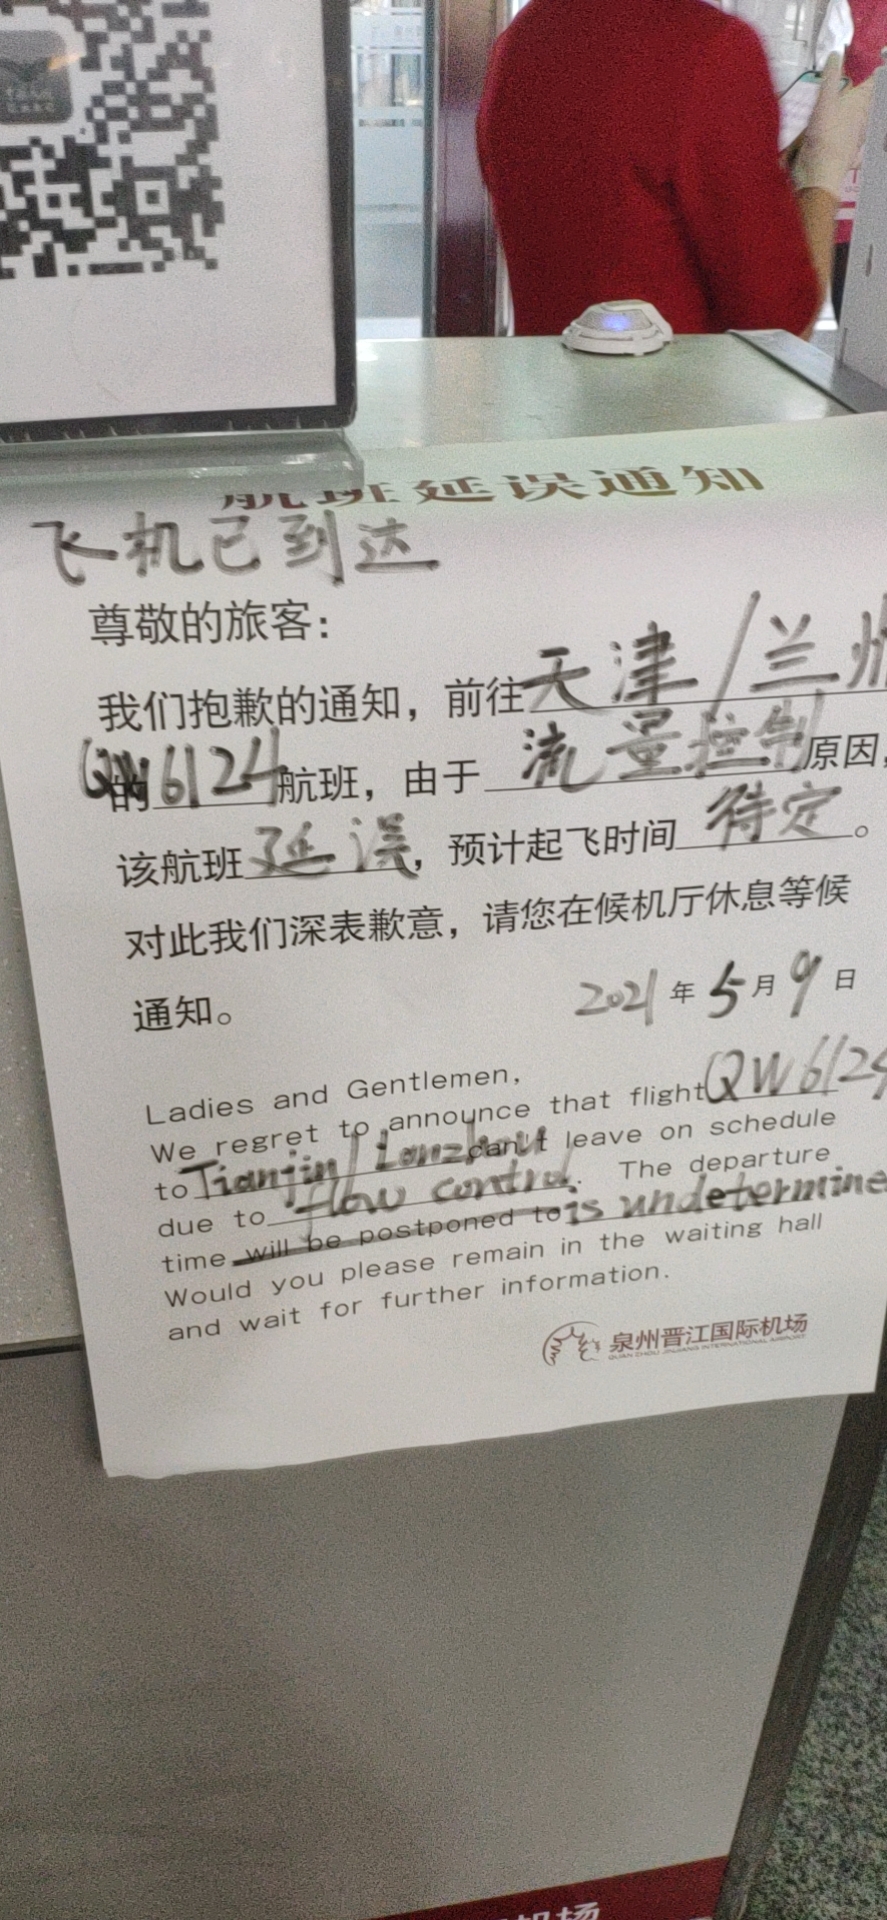 航班延误通知
飞机已到达
尊敬的旅客：
我们抱歉的通知，前往天津/兰州
的QW6124航班，由于流量控制原因，
该航班延误，预计起飞时间待定。
对此我们深表歉意，请您在候机厅休息等候
通知。
2021年5月9日
Ladies and Gentlemen,
We regret to announce that flight QW6124
to Tianjin/Lanzhou can't leave on schedule
due to flow control. The departure
time will be postponed to is undetermine
Would you please remain in the waiting hall
and wait for further information.
泉州晋江国际机场
QUAN ZHOU JINJIANG INTERNATIONAL AIRPORT
机场